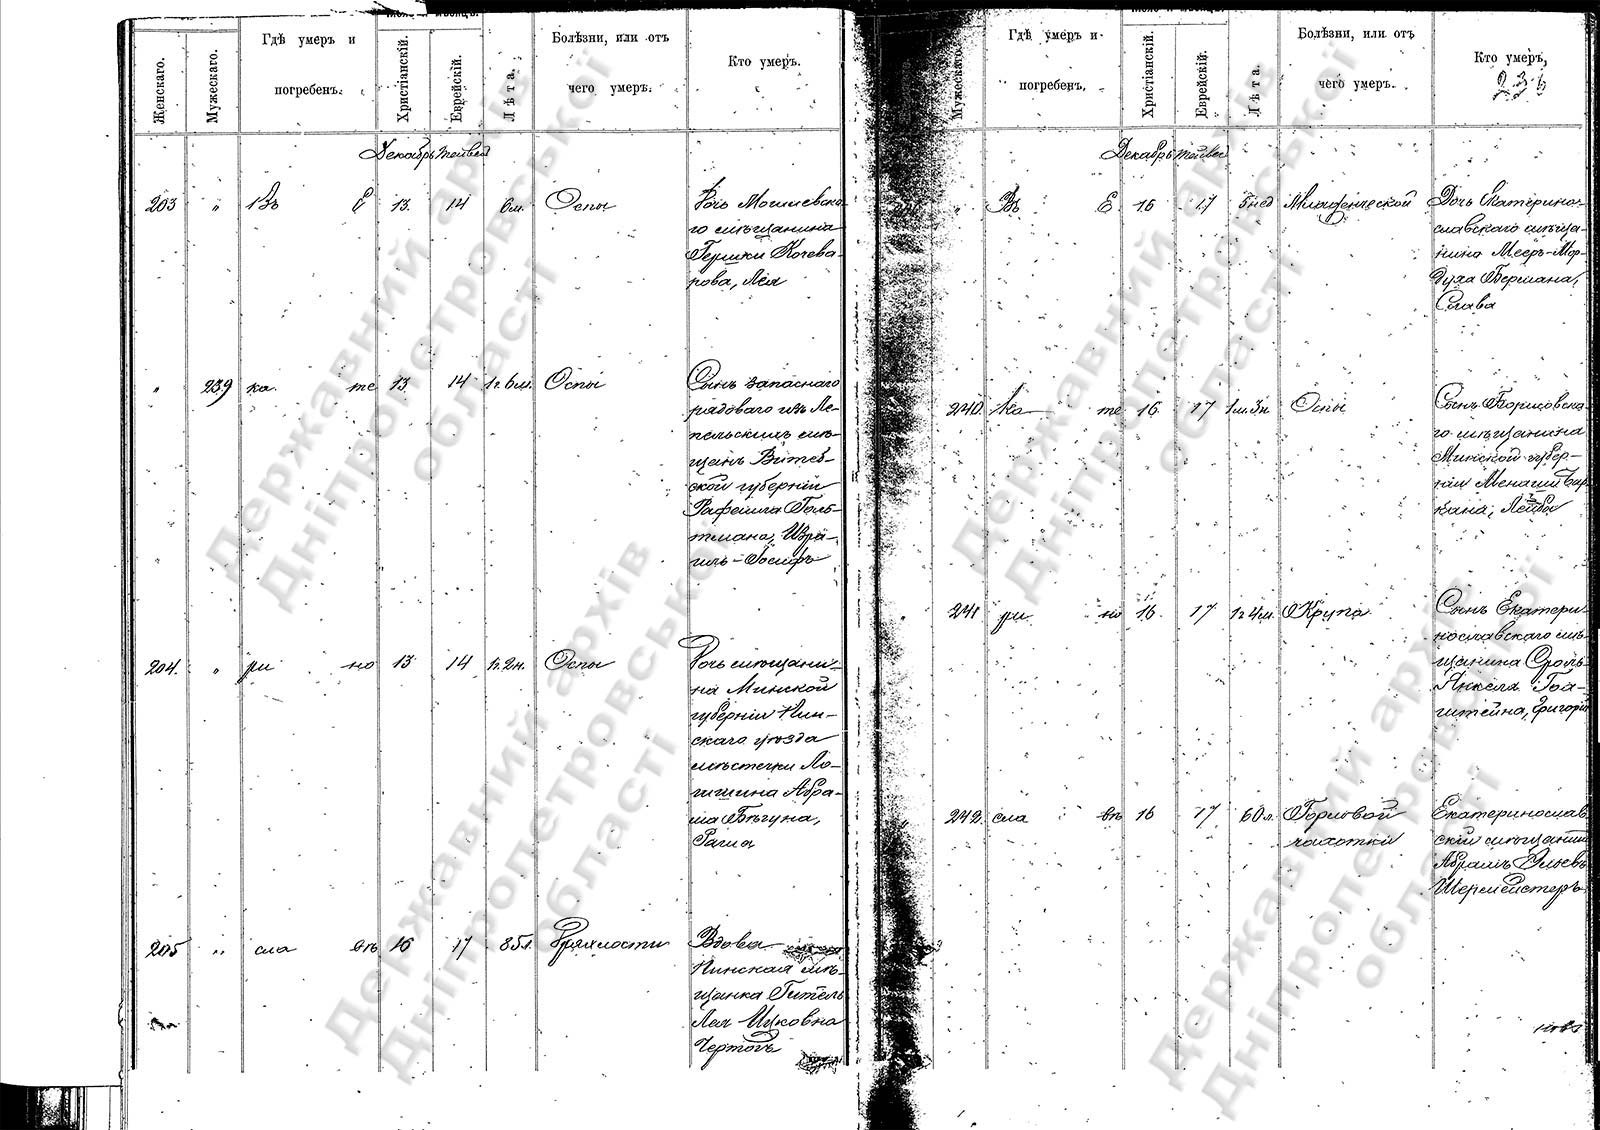 Женскаго.
Мужескаго.
Гдѣ умеръ и
погребенъ.
Христіанскій.
Еврейскій.
Лѣта.
Болѣзни, или отъ
чего умеръ.
Кто умеръ.
Декабрь Тейвей
203 " Въ Е 13. 14 6 м. Оспы
Дочь Могилевска-
го мѣщанина
Гершки Кочева-
рова, Лея
" 239 ка те 13 14 1 г. 6 м. Оспы
Сынъ запаснаго
рядоваго изъ Ле-
пельскихъ мѣ-
щанъ Витеб-
ской губерніи
Рафеила Голь-
тмана, Изра-
иль-Іосифъ
204. " ри но 13 14 Оспы
Дочь мѣщани-
на Минской
губерніи Пин-
скаго уѣзда
мѣстечки Ло-
гишина Абра-
ма Бѣгуна,
Рагля
205 " сла вѣ 16 17 85 л. Дряхлости
Вдова
Пинская мѣ-
щанка Гитель
Лея Ицковна
Чертокъ
Мужескаго.
Гдѣ умеръ и
погребенъ.
Христіанскій.
Еврейскій.
Лѣта.
Болѣзни, или отъ
чего умеръ.
Кто умеръ,
236
Декабрь Тейвей
" Въ Е 16 17 5 нед Младенческой
Дочь Екатерино-
славскаго мѣща-
нина Мееръ-Мор-
духа Бермана,
Слава
240. ка те 16 17 1 м. 3 н. Оспы
Сынъ Борисовска-
го мѣщанина
Минской губер-
ніи Менаши Бар
кана, Лейба
241 ри но 16 17 1 г. 4 м. Крупа
Сынъ Екатери-
нославскаго мѣ-
щанина Сроль-
Янкеля
штейна, Григорій
242. сла вѣ 16 17 60 л. Горловой
чахотки
Екатеринослав
скій мѣщанинъ
Абрамъ
Шермейстеръ
Державний архів
Дніпропетровської
області
Державний архів
Дніпропетровської
області
Державний архів
Дніпропетровської
області
Державний архів
Дніпропетровської
області